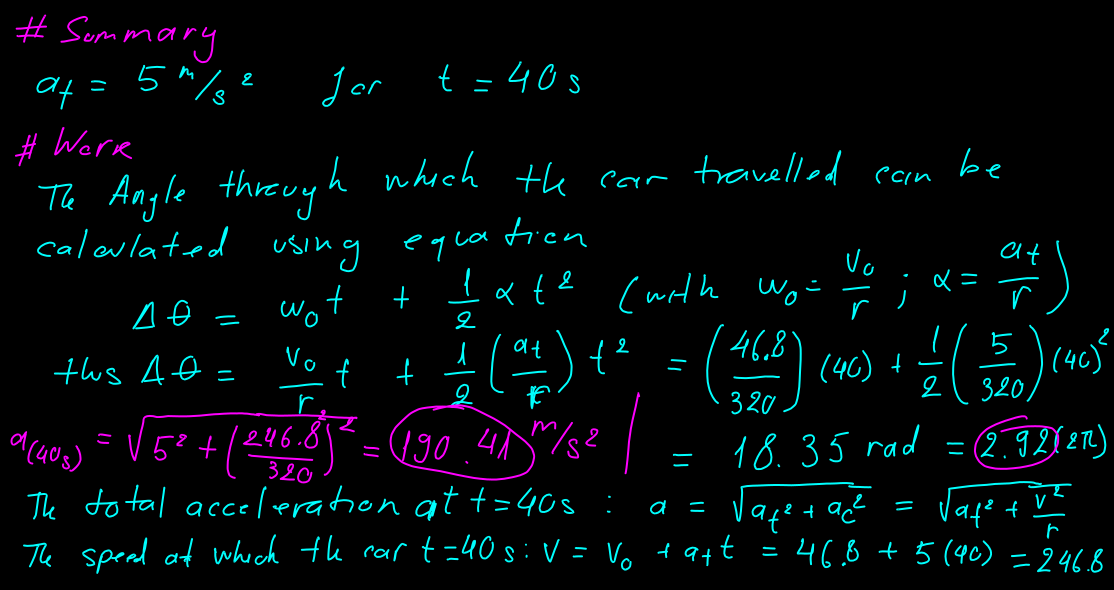 # Summary
a_t = 5 m/s² for t = 40s
# Work
The Angle through which the car travelled can be
calculated using equation
Δθ = ω₀t + 1/2 αt² (with ω₀ = v₀/r ; α = a_t/r)
thus Δθ = v₀/r t + 1/2 (a_t/r) t² = (46.8/320)(40) + 1/2 (5/320)(40)²
a(40s) = √(5² + (246.8²/320)²) = 190.41 m/s² | = 18.35 rad = 2.92(2π)
The total acceleration at t=40s : a = √(a_t² + a_c²) = √(a_t² + v²/r)
The speed at which the car t=40s: v = v₀ + a_t t = 46.8 + 5(40) = 246.8